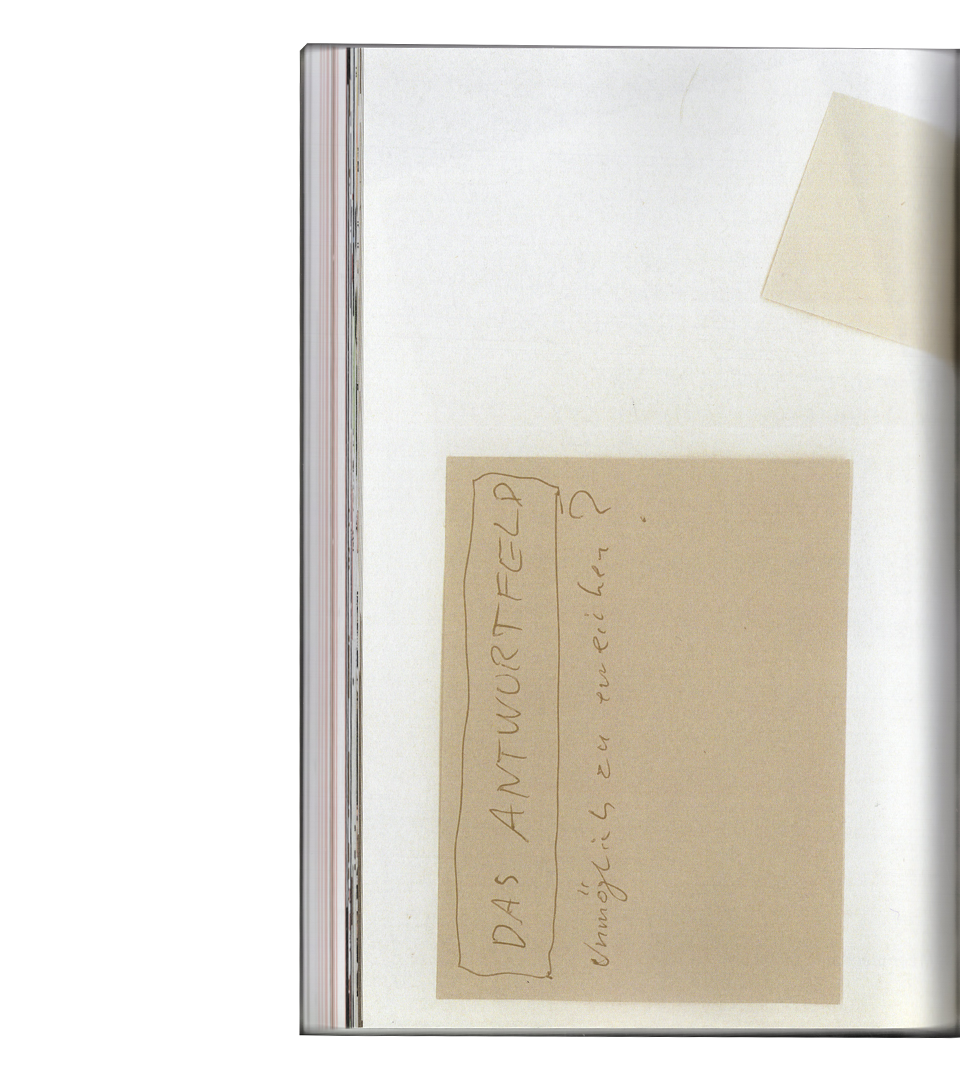 DAS ANTWORTFELD
Unmöglich zu erreichen?